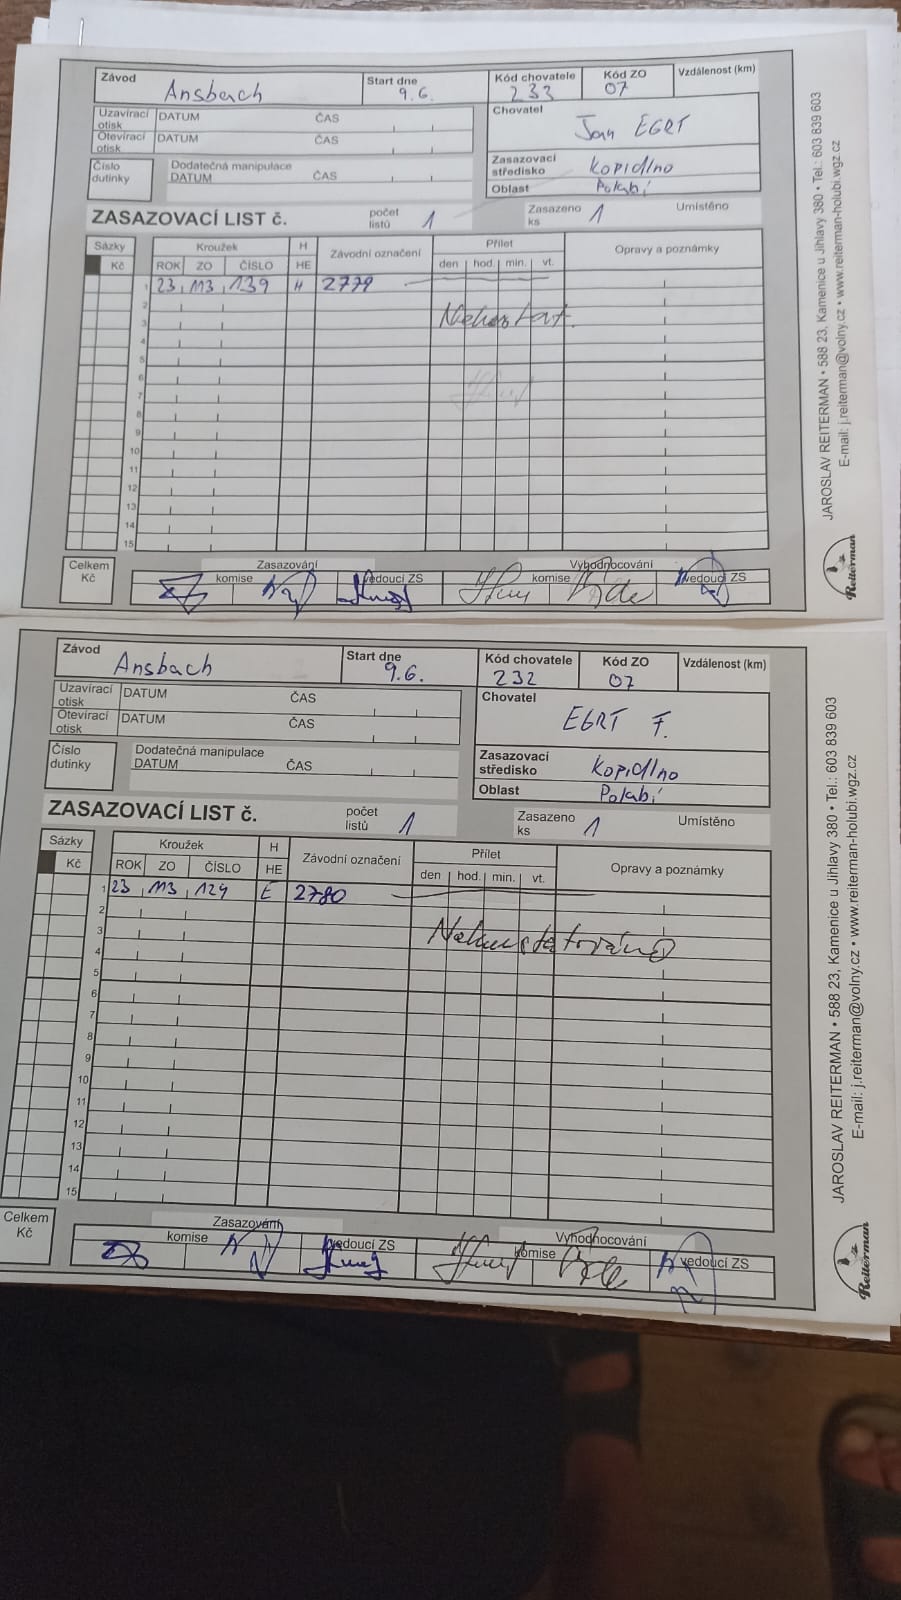 Závod Ansbach Start dne 9.6. Kód chovatele 233 Kód ZO 07 Vzdálenost (km)
Uzavírací otisk DATUM ČAS
Otevírací otisk DATUM ČAS
Chovatel Jan EGRT
Číslo dutinky Dodatečná manipulace DATUM ČAS
Zasazovací středisko Kopidlno
Oblast Polabí
ZASAZOVACÍ LIST č. počet listů 1 Zasazeno ks 1 Umístěno
Sázky Kroužek H Závodní označení Přílet Opravy a poznámky
Kč ROK ZO ČÍSLO HE den hod. min. vt.
1 23 M3 139 H 2779
2
3 Nekonstat.
4
5
6
7
8
9
10
11
12
13
14
15
Celkem Kč Zasazování Vyhodnocování
komise vedoucí ZS komise vedoucí ZS
JAROSLAV REITERMAN • 588 23, Kamenice u Jihlavy 380 • Tel.: 603 839 603
E-mail: j.reiterman@volny.cz • www.reiterman-holubi.wgz.cz
Reiterman
Závod Ansbach Start dne 9.6. Kód chovatele 232 Kód ZO 07 Vzdálenost (km)
Uzavírací otisk DATUM ČAS
Otevírací otisk DATUM ČAS
Chovatel EGRT F.
Číslo dutinky Dodatečná manipulace DATUM ČAS
Zasazovací středisko Kopidlno
Oblast Polabí
ZASAZOVACÍ LIST č. počet listů 1 Zasazeno ks 1 Umístěno
Sázky Kroužek H Závodní označení Přílet Opravy a poznámky
Kč ROK ZO ČÍSLO HE den hod. min. vt.
1 23 M3 124 E 2780
2
3 Nekonstatováno
4
5
6
7
8
9
10
11
12
13
14
15
Celkem Kč Zasazování Vyhodnocování
komise vedoucí ZS komise vedoucí ZS
JAROSLAV REITERMAN • 588 23, Kamenice u Jihlavy 380 • Tel.: 603 839 603
E-mail: j.reiterman@volny.cz • www.reiterman-holubi.wgz.cz
Reiterman